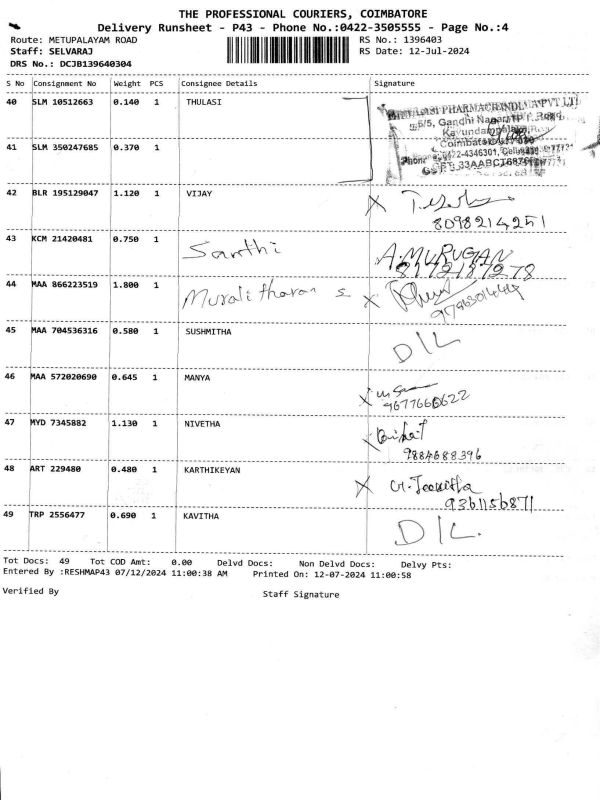 THE PROFESSIONAL COURIERS, COIMBATORE
Delivery Runsheet - P43 - Phone No.:0422-3505555 - Page No.:4
Route: METUPALAYAM ROAD RS No.: 1396403
Staff: SELVARAJ RS Date: 12-Jul-2024
DRS No.: DCJB139640304
S No Consignment No Weight PCS Consignee Details Signature
40 SLM 10512663 0.140 1 THULASI
THULASI PHARMACIES INDIA PVT LTD
5/5, Gandhi Nagar
Kavundampalayam
41 SLM 350247685 0.370 1
Coimbatore
Phone
42 BLR 195129047 1.120 1 VIJAY
8098214251
43 KCM 21420481 0.750 1 Santhi A.MURUGAN
44 MAA 866223519 1.800 1 Muralitharan S
45 MAA 704536316 0.580 1 SUSHMITHA D/L
46 MAA 572020690 0.645 1 MANYA
47 MYD 7345882 1.130 1 NIVETHA
9884688396
48 ART 229480 0.480 1 KARTHIKEYAN
9361156871
49 TRP 2556477 0.690 1 KAVITHA D/L.
Tot Docs: 49 Tot COD Amt: 0.00 Delvd Docs: Non Delvd Docs: Delvy Pts:
Entered By :RESHMAP43 07/12/2024 11:00:38 AM Printed On: 12-07-2024 11:00:58
Verified By Staff Signature